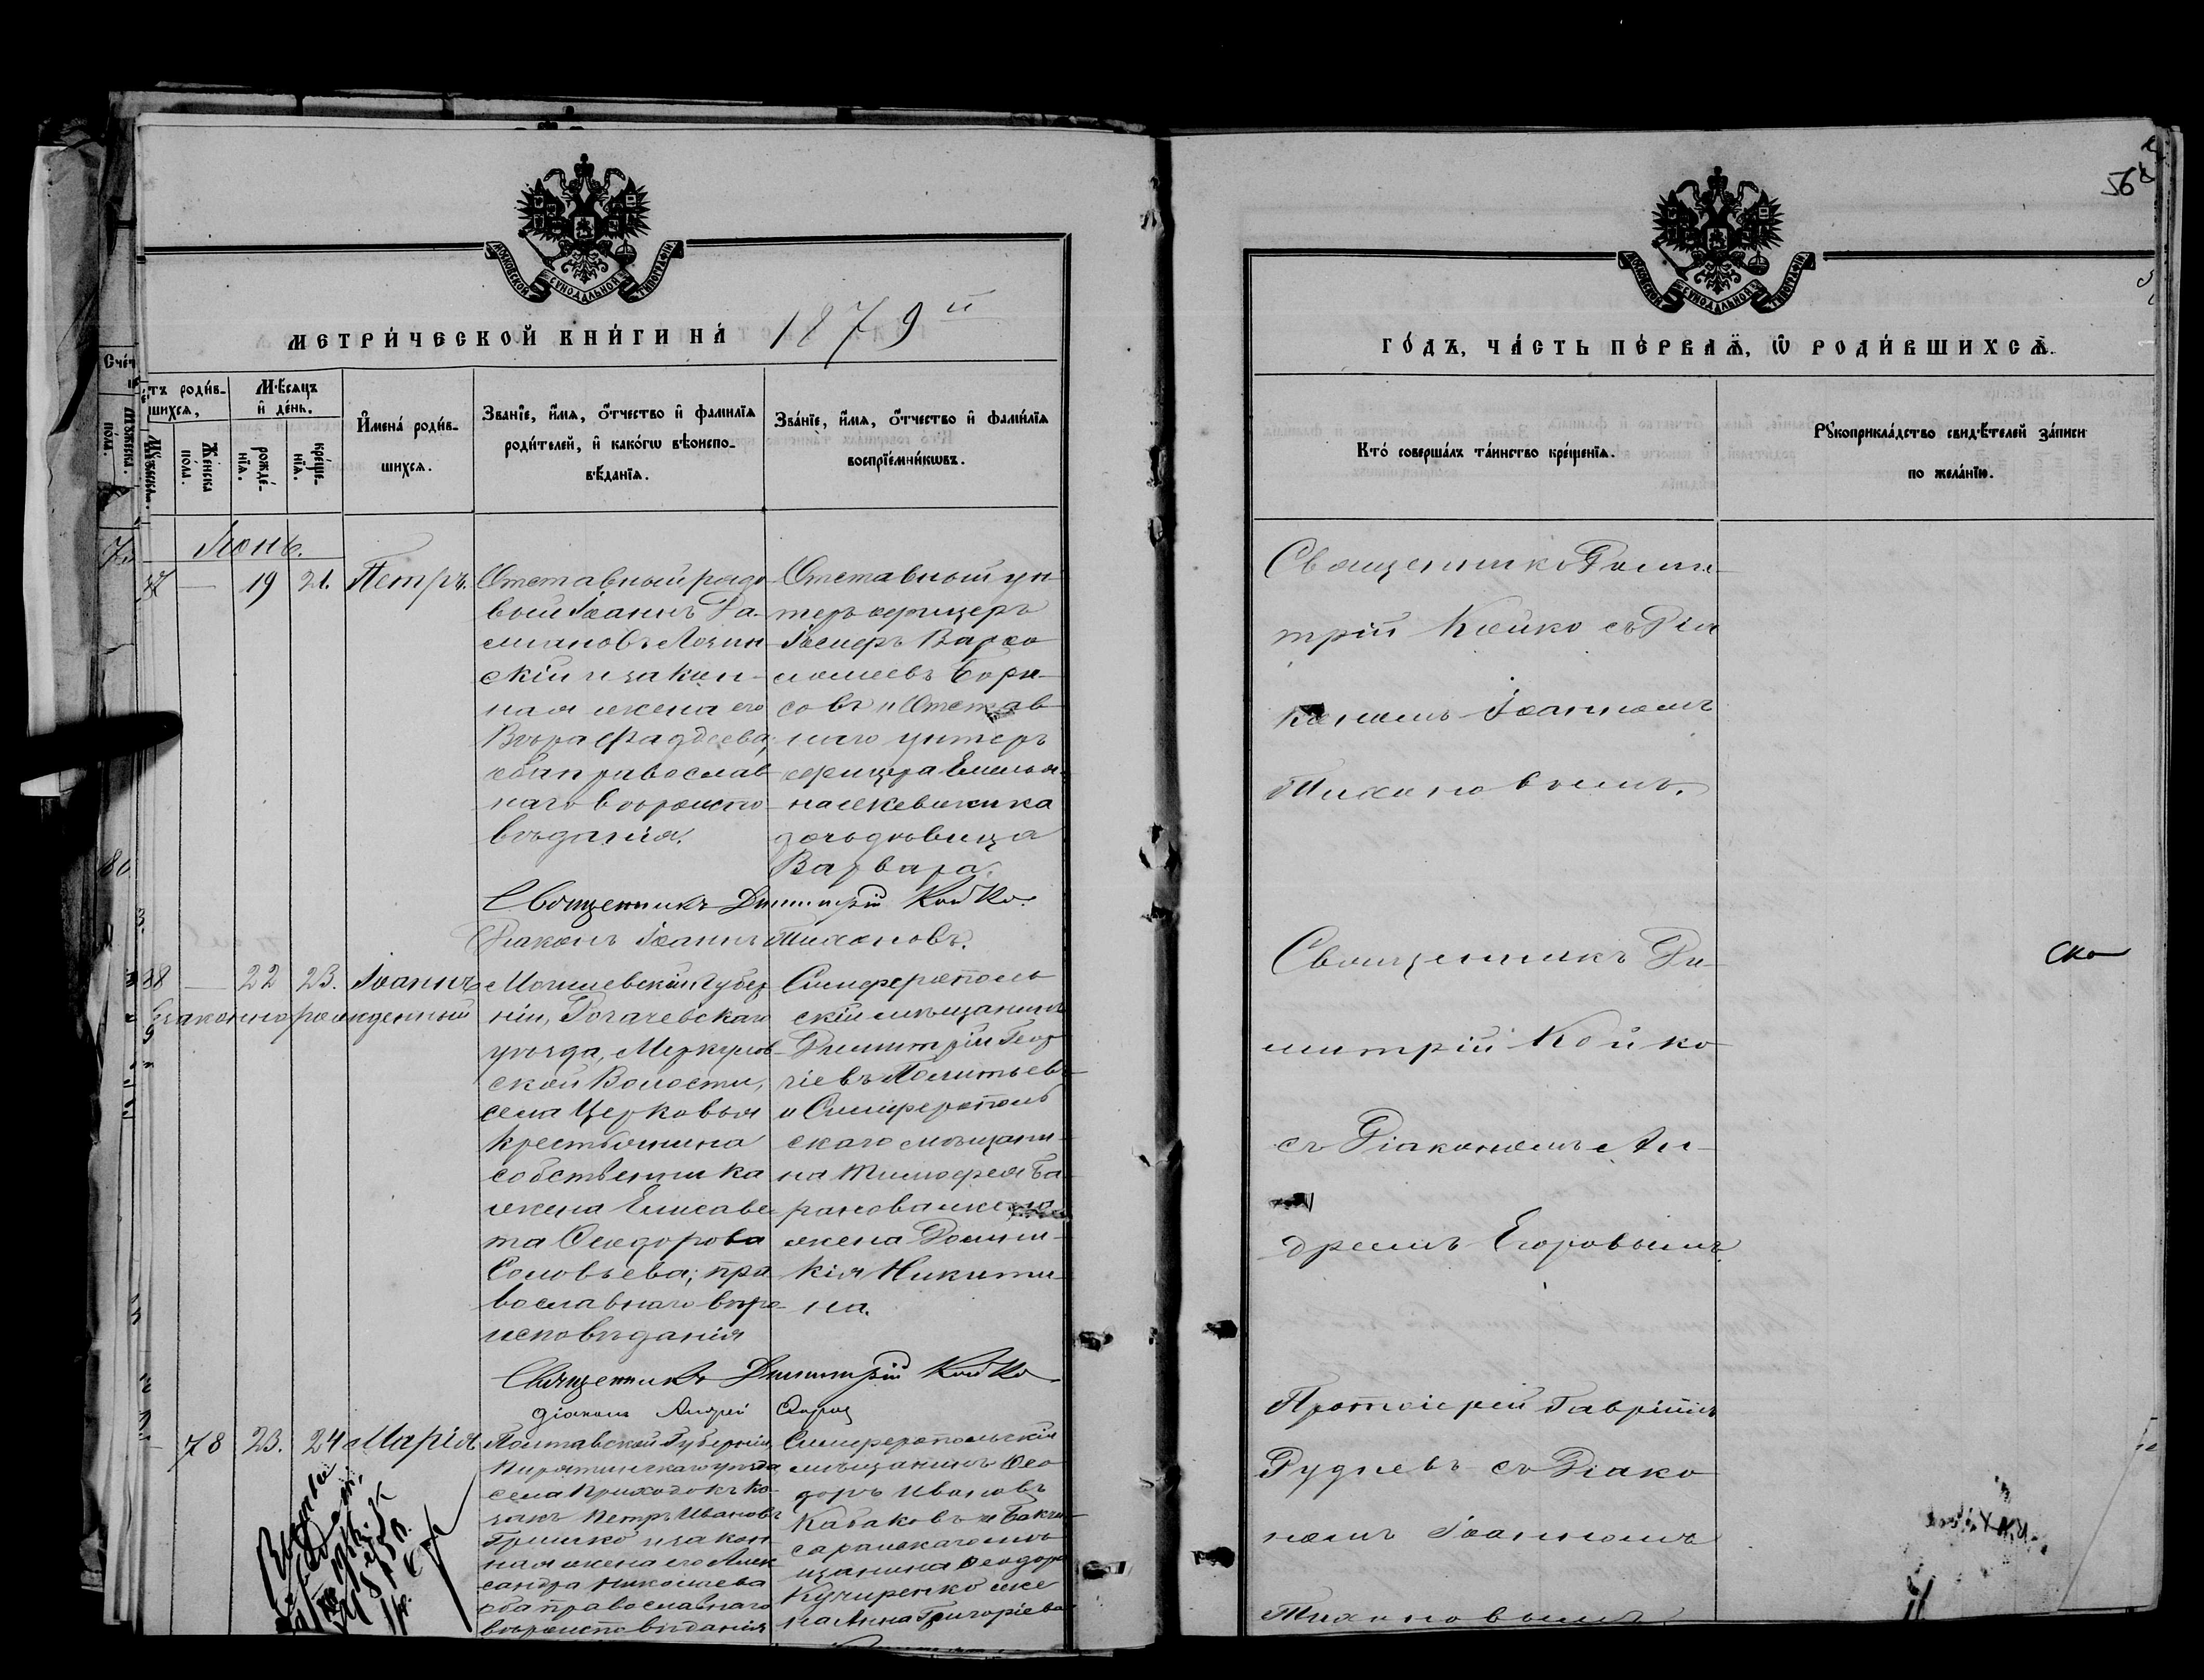 56
МОСКОВСКОЙ СѴНОДАЛЬНОЙ ТИПОГРАФІИ
МЕТРИ́ЧЕСКОЙ КНИ́ГИ НА́ 1879й
Счетъ роди́вшихсѧ,
Мѹжеска пола.
Же́нска пола.
Мѣ́сѧцъ и҆ де́нь.
рожде́нїѧ.
креще́нїѧ.
И҆мена̀ роди́вшихсѧ.
Зва́нїе, и҆́мѧ, ѻ҆́тчество и҆ фами́лїѧ
роди́телей, и҆ како́гѡ вѣ́роиспо-
вѣ́данїѧ.
Зва́нїе, и҆́мѧ, ѻ҆́тчество и҆ фами́лїѧ
воспрїе́мникѡвъ.
Іюнь.
37 — 19 21. Петръ.
Отставный рядо
вый Іоаннъ Да-
міановъ Лозин
скій и закон-
ная жена его
Вѣра Фаддеева;
оба православ
наго вѣроиспо
вѣданія.
Отставный ун
теръ офицеръ
Варѳо
ломеевъ Бори-
совъ и Отстав
наго унтеръ
офицера Емелья-
на
дочь дѣвица
Варвара.
Священникъ Димитрій Койко.
Діаконъ Іоаннъ Тихановъ.
38 — 22 23. Іоаннъ
Незаконнорожденный
Могилевской Губер
ніи, Рогачевскаго
уѣзда, Меркулов-
ской Волости,
села Церковья
крестьянина
собственника
жена Елисаве
та Ѳеодорова
Соловьева; пра
вославнаго вѣро
исповѣданія
Симферополь
скій мѣщанинъ
Димитрій Геор
гіевъ
и Симферополь
скаго мѣщани-
на Тимофея Ба
ранова
жена Домни-
кія Никити-
на.
Священникъ Димитрій Койко
Діаконъ Андрей
— 78 23. 24 Марія
Полтавской Губерніи,
Пирятинскаго уѣзда
села Приходокъ Ко-
закъ Петръ Ивановъ
Гришко и закон
ная жена его Алек
сандра Николаева
оба православнаго
вѣроисповѣданія
Симферопольскій
мѣщанинъ Ѳео
доръ Ивановъ
Кабаковъ и Бахчи-
сарайскаго мѣ
щанина Ѳеодора
Кучиренко же
на Анна Григоріева
МОСКОВСКОЙ СѴНОДАЛЬНОЙ ТИПОГРАФІИ
ГО́ДЪ, ЧА́СТЬ ПЕ́РВАѦ, Ѡ҆ РОДИ́ВШИХСѦ.
Кто̀ соверша́лъ та́инство креще́нїѧ.
Рѹкоприкла́дство свидѣ́телей за́писи
по жела́нїю.
Священникъ Дими-
трій Койко съ Діа
кономъ Іоанномъ
Тихановымъ.
Священникъ Ди-
митрій Койко
съ Діакономъ Ан-
дреемъ Егоровымъ.
Протоіерей Гавріилъ
Рудневъ съ Діако
номъ Іоанномъ
Тихановымъ